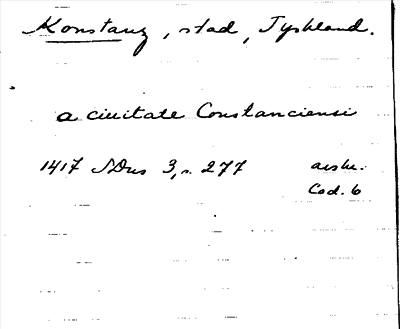 Konstanz, stad, Tyskland.
a ciuitate Constanciensi
1417 SDns 3, s. 277 avskr.
Cod. 6